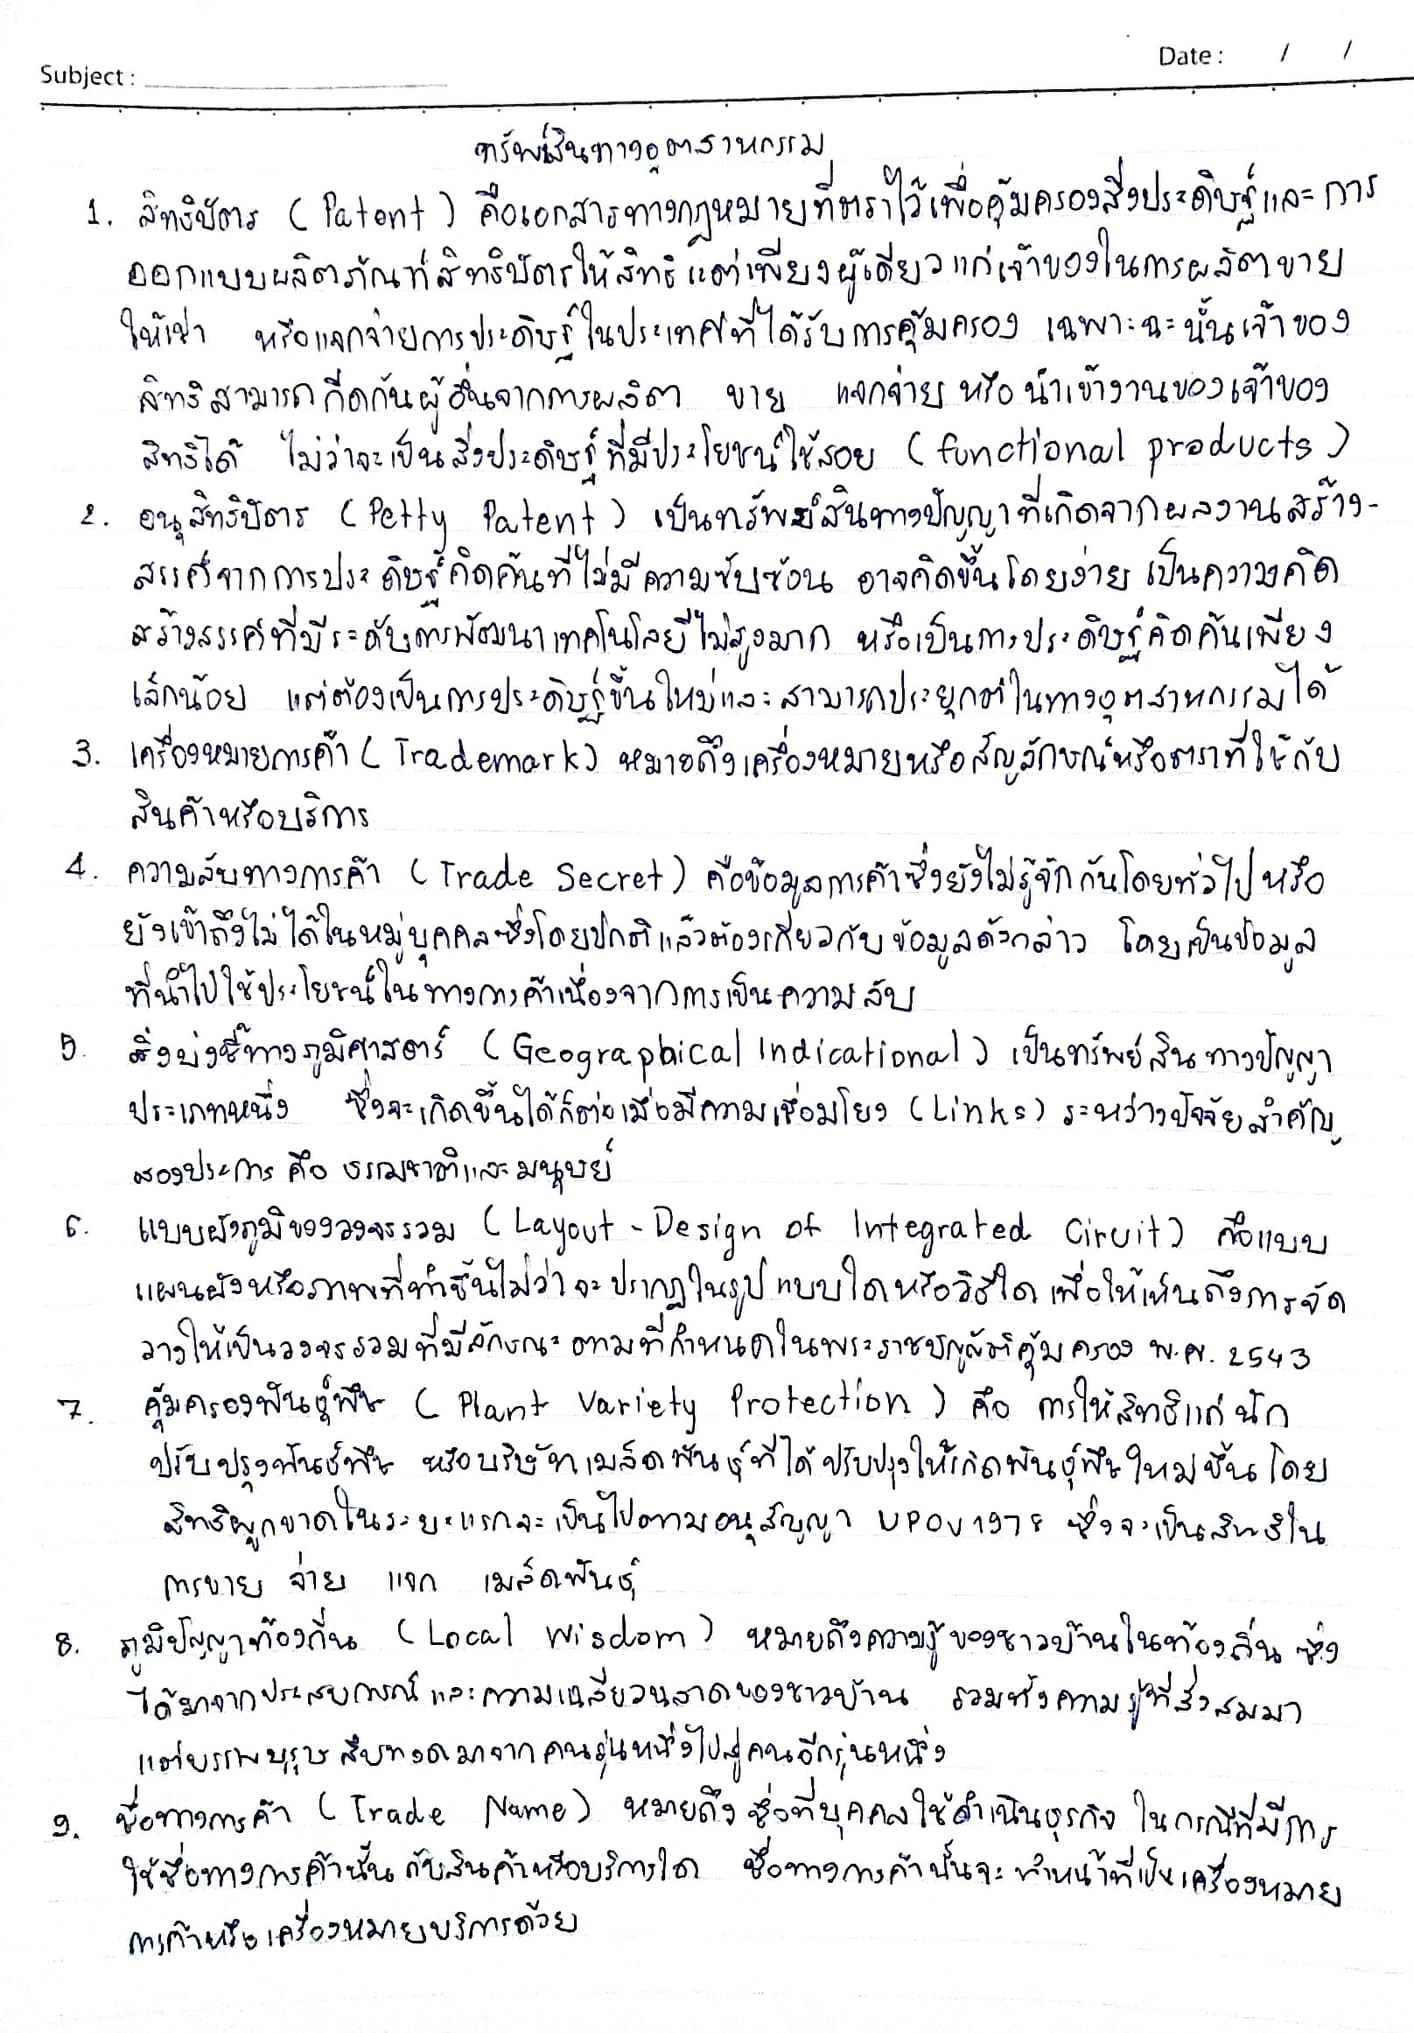 Date : / /
Subject :
ทรัพย์สินทางอุตสาหกรรม
1. สิทธิบัตร (Patent) คือเอกสารทางกฎหมายที่ตราไว้เพื่อคุ้มครองสิ่งประดิษฐ์และการ
ออกแบบผลิตภัณฑ์สิทธิบัตรให้สิทธิแต่เพียงผู้เดียวแก่เจ้าของในการผลิตขาย
ให้เช่า หรือแจกจ่ายการประดิษฐ์ในประเทศที่ได้รับการคุ้มครอง เฉพาะฉะนั้นเจ้าของ
สิทธิสามารถกีดกันผู้อื่นจากการผลิต ขาย แจกจ่าย หรือนำเข้างานของเจ้าของ
สิทธิได้ ไม่ว่าจะเป็นสิ่งประดิษฐ์ที่มีประโยชน์ใช้สอย (functional products)
2. อนุสิทธิบัตร (Petty Patent) เป็นทรัพย์สินทางปัญญาที่เกิดจากผลงานสร้าง-
สรรค์จากการประดิษฐ์คิดค้นที่ไม่มีความซับซ้อน อาจคิดขึ้นโดยง่าย เป็นความคิด
สร้างสรรค์ที่มีระดับการพัฒนาเทคโนโลยีไม่สูงมาก หรือเป็นการประดิษฐ์คิดค้นเพียง
เล็กน้อย แต่ต้องเป็นการประดิษฐ์ขึ้นใหม่และสามารถประยุกต์ในทางอุตสาหกรรมได้
3. เครื่องหมายการค้า (Trademark) หมายถึงเครื่องหมายหรือสัญลักษณ์หรือตราที่ใช้กับ
สินค้าหรือบริการ
4. ความลับทางการค้า (Trade Secret) คือข้อมูลการค้าซึ่งยังไม่รู้จักกันโดยทั่วไปหรือ
ยังเข้าถึงไม่ได้ในหมู่บุคคลซึ่งโดยปกติแล้วต้องเกี่ยวกับข้อมูลดังกล่าว โดยเป็นข้อมูล
ที่นำไปใช้ประโยชน์ในทางการค้าเนื่องจากการเป็นความลับ
5. สิ่งบ่งชี้ทางภูมิศาสตร์ (Geographical Indicational) เป็นทรัพย์สินทางปัญญา
ประเภทหนึ่ง ซึ่งจะเกิดขึ้นได้ก็ต่อเมื่อมีความเชื่อมโยง (Links) ระหว่างปัจจัยสำคัญ
สองประการ คือ ธรรมชาติและมนุษย์
6. แบบผังภูมิของวงจรรวม (Layout - Design of Integrated Circuit) คือแบบ
แผนผังหรือภาพที่ทำขึ้นไม่ว่าจะปรากฏในรูปแบบใดหรือวิธีใด เพื่อให้เห็นถึงการจัด
วางให้เป็นวงจรรวมที่มีลักษณะตามที่กำหนดในพระราชบัญญัติคุ้มครอง พ.ศ. 2543
7. คุ้มครองพันธุ์พืช (Plant Variety Protection) คือ การให้สิทธิแก่นัก
ปรับปรุงพันธุ์พืช หรือบริษัทเมล็ดพันธุ์ที่ได้ปรับปรุงให้เกิดพันธุ์พืชใหม่ขึ้นโดย
สิทธิผูกขาดในระยะแรกจะเป็นไปตามอนุสัญญา UPOV 1978 ซึ่งจะเป็นสิทธิใน
การขาย จ่าย แจก เมล็ดพันธุ์
8. ภูมิปัญญาท้องถิ่น (Local Wisdom) หมายถึงความรู้ของชาวบ้านในท้องถิ่น ซึ่ง
ได้มาจากประสบการณ์และความเฉลียวฉลาดของชาวบ้าน รวมทั้งความรู้ที่สั่งสมมา
แต่บรรพบุรุษ สืบทอดมาจากคนรุ่นหนึ่งไปสู่คนอีกรุ่นหนึ่ง
9. ชื่อทางการค้า (Trade Name) หมายถึง ชื่อที่บุคคลใช้ดำเนินธุรกิจ ในกรณีที่มีการ
ใช้ชื่อทางการค้านั้นกับสินค้าหรือบริการใด ชื่อทางการค้านั้นจะทำหน้าที่เป็นเครื่องหมาย
การค้าหรือเครื่องหมายบริการด้วย